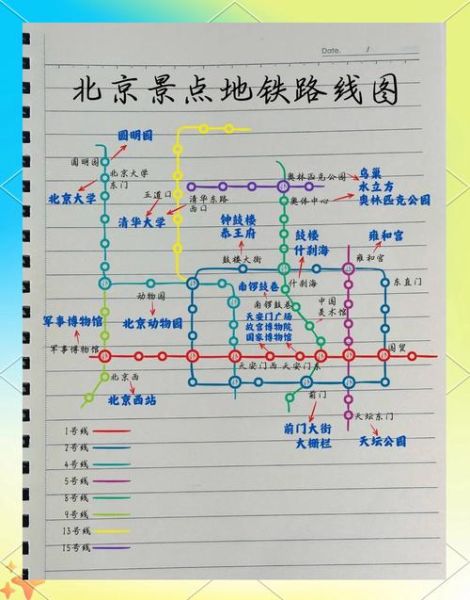 Date. /
北京景点地铁路线图
圆明园
圆明园
北京大学
东门
北京大学
五道口
清华大学
清华东路
西口
奥林匹克公园
鸟巢
水立方
奥林匹克公园
奥体中心
钟鼓楼
恭王府
鼓楼大街
鼓楼
什刹海
什刹海
雍和宫
雍和宫
东直门
动物园
北京动物园
南锣鼓巷
南锣鼓巷
中国
美术馆
天安门广场
故宫博物院
国家博物馆
军事博物馆
军事博物馆
天安门西
天安门东
国贸
北京西
北京西站
前门
前门大街
大栅栏
天坛东门
天坛公园
1号线
2号线
4号线
5号线
8号线
9号线
13号线
15号线